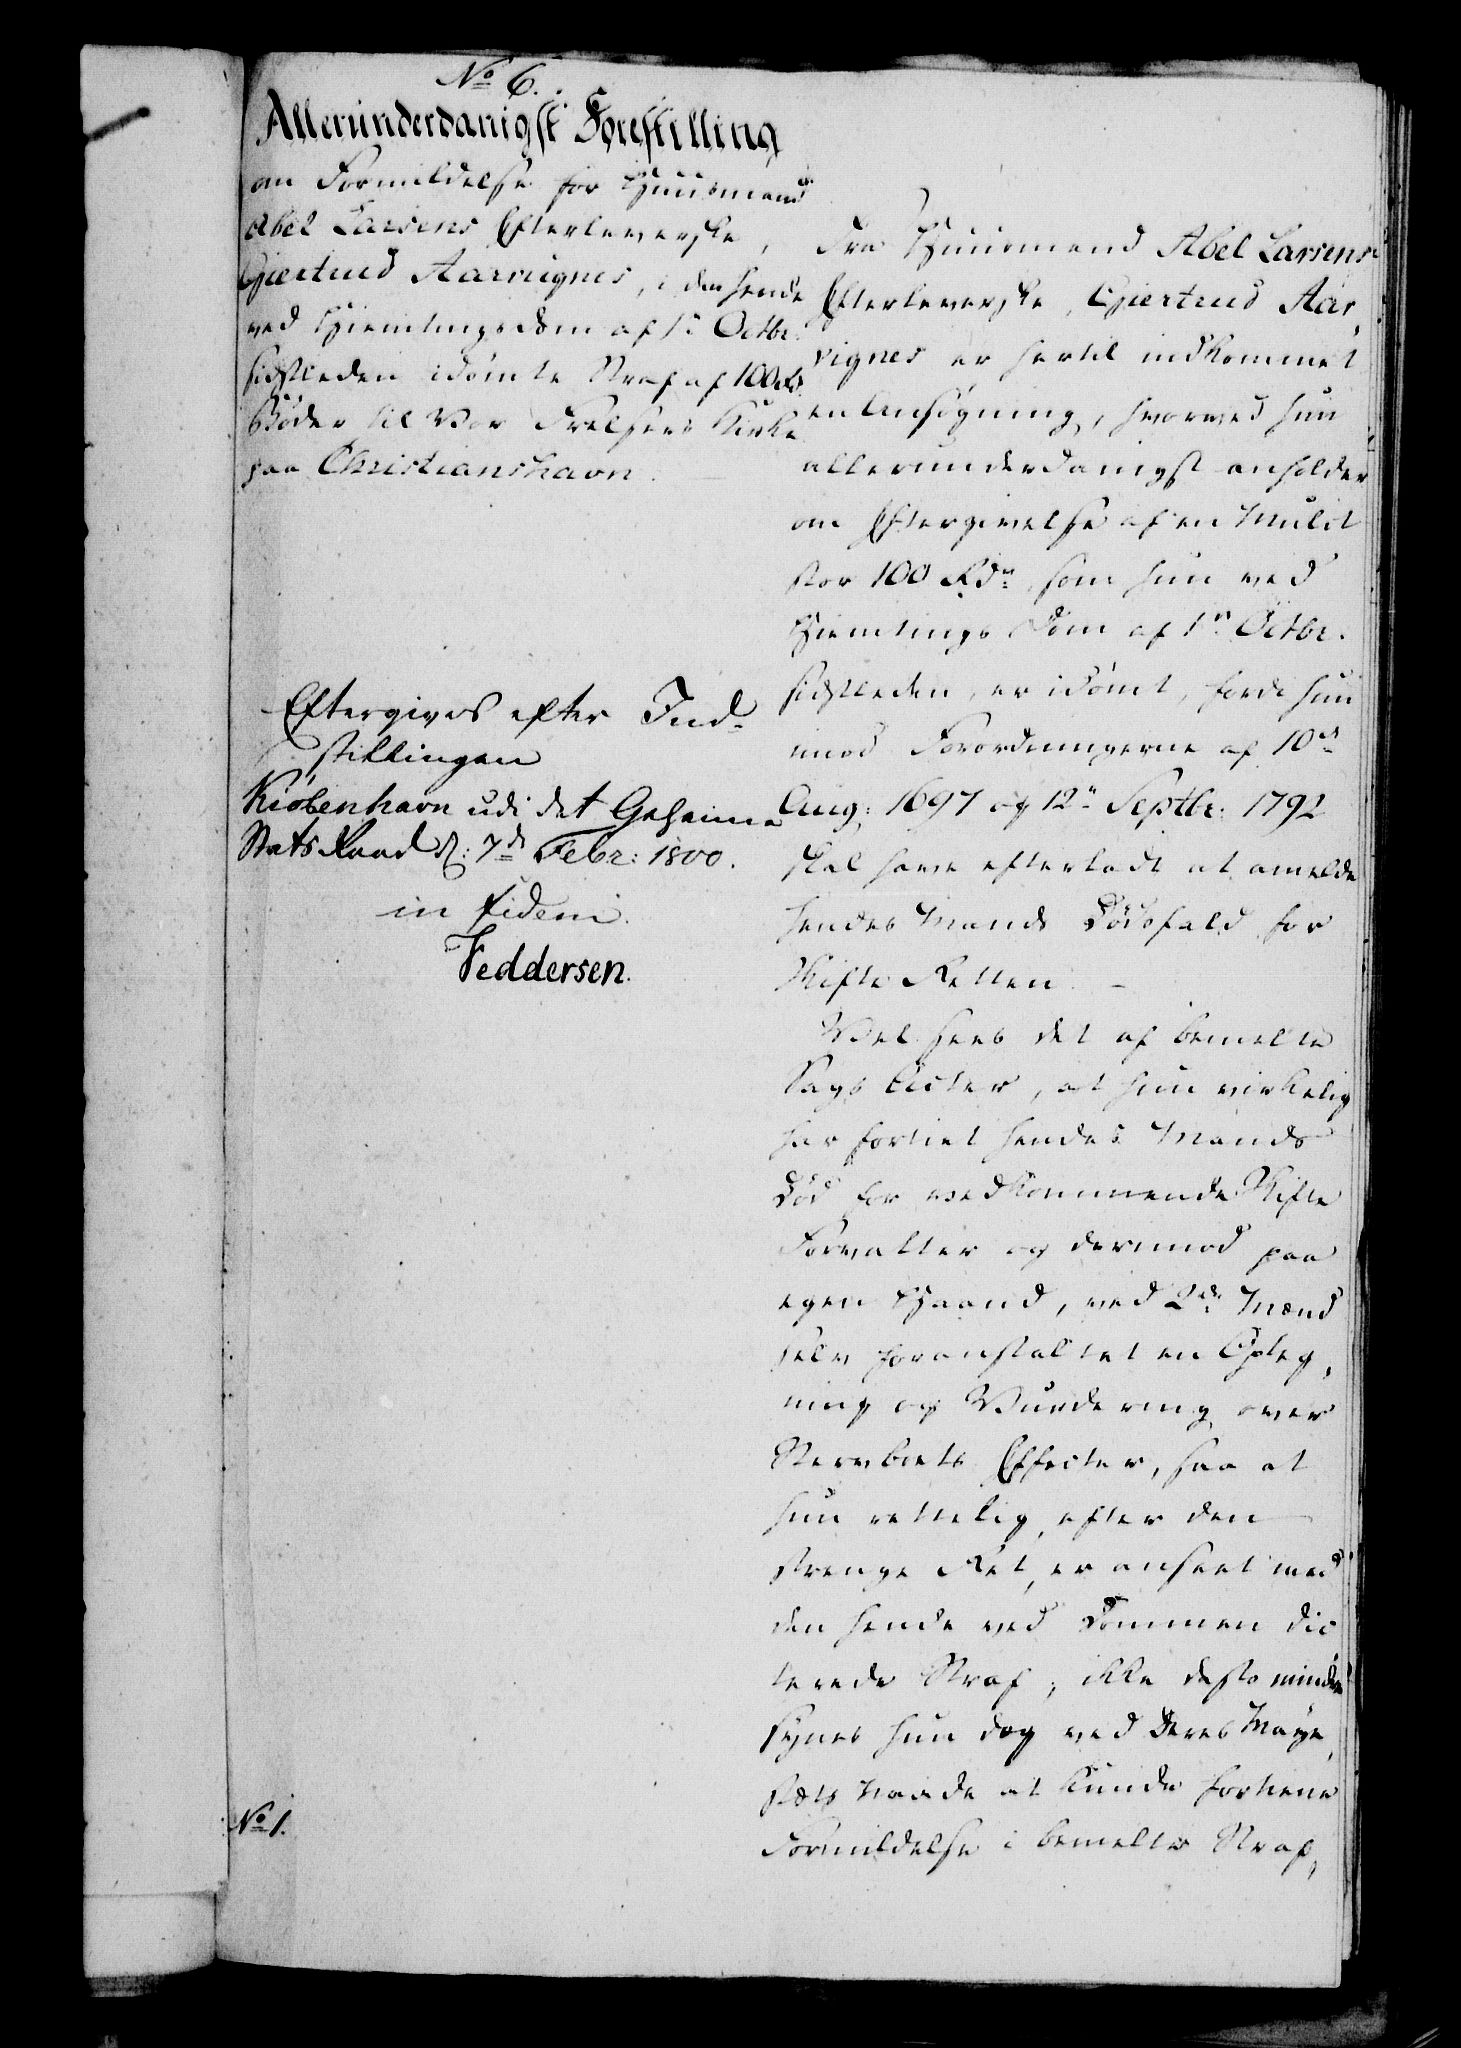 No 6.
Allerunderdanigst Forestilling
om Formildelse for Huusmand
Abel Larsens Efterleverske,
Giertrud Aarvignes, i den hende
ved Hiemtingsdom af 1n Octbr.
sidstleden idømte Straf af 100 Rd.
Bøder til Vor Frelsers Kirke
paa Christianshavn.
Eftergives efter Ind-
stillingen
Kiøbenhavn udi det Geheime
Stats Raad d: 7de Febr: 1800.
in fidem
Feddersen.
No 1.
Fra Huusmand Abel Larsens
Efterleverske, Giertrud Aar,
vignes er hertil indkommet
en Ansøgning, hvorved hun
allerunderdanigst anholder
om Eftergivelse af en Mulct
stor 100 Rdr, som hun ved
Hiemtings Dom af 1n Octbr.
sidstleden, er idømt, fordi hun
imod Forordningerne af 10de
Aug: 1697 og 12n Septbr: 1792
skal have efterladt at anmelde
hendes Mands Dødsfald for
Skifte Retten. –
Vel sees det af bemelte
Sags Acter, at hun virkelig
har fortiet hendes Mands
Død for vedkommende Skifte
Forvalter og derimod paa
egen Haand, ved 2de Mænd
selv foranstaltet en Opteg,
ning og Vurdering over
Stervboets Effecter, saa at
hun rettelig, efter den
strenge Ret, er anseet med
den hende ved Dommen dic
terede Straf; ikke desto mindre
synes hun dog ved Deres Maje,
stæts Naade at kunde fortiene
Formildelse i bemelte Straf,